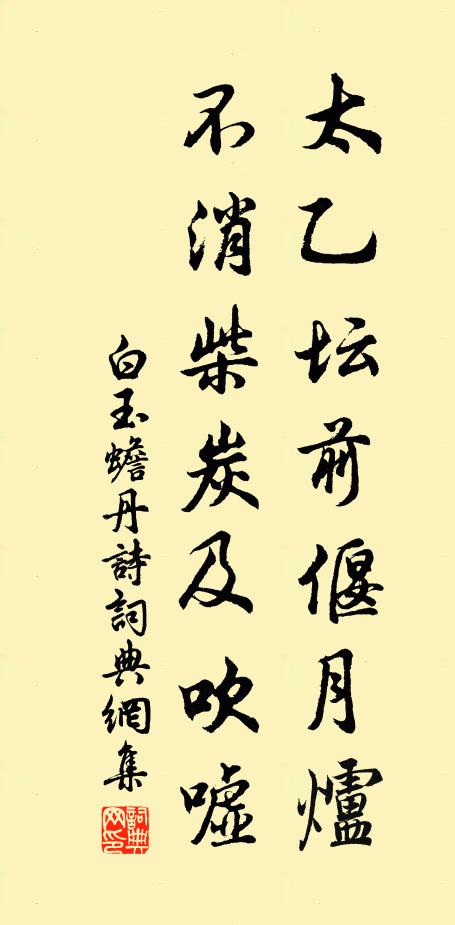 太乙坛前偃月爐
不消柴炭及吹嘘
白玉蟾丹詩詞典網集
詞典网印